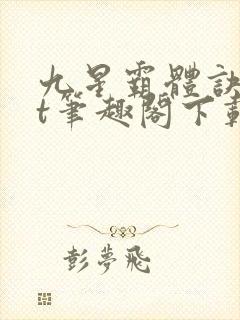 九星霸體訣
t筆趣閣下載
彭夢飛